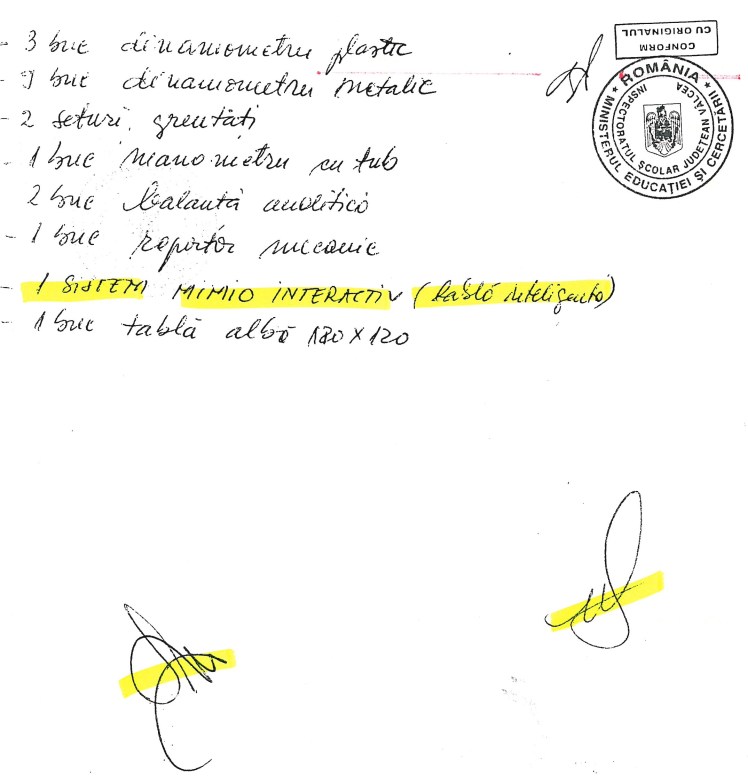 - 3 buc dinamometru plastic
- 9 buc dinamometru metalic
- 2 seturi greutăți
- 1 buc manometru cu tub
2 buc balantă analitică
- 1 buc raportor mecanic
- 1 SISTEM MIMIO INTERACTIV (tablă inteligentă)
- 1 buc tablă albă 180 X 120
CONFORM
CU ORIGINALUL
ROMÂNIA
MINISTERUL EDUCAȚIEI ȘI CERCETĂRII
INSPECTORATUL ȘCOLAR JUDEȚEAN VÂLCEA